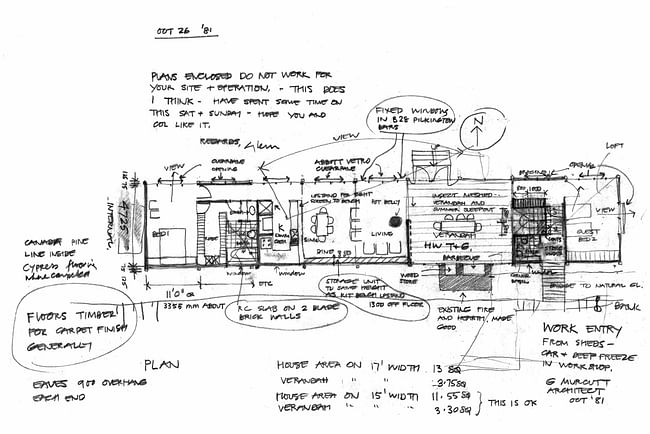 OCT 26 '81
PLANS ENCLOSED DO NOT WORK FOR
YOUR SITE + OPERATION. - THIS DOES
I THINK - HAVE SPENT SOME TIME ON
THIS SAT + SUNDAY - HOPE YOU AND
COL LIKE IT.
REGARDS, Glenn
FIXED WINDOW
IN B28 PILKINGTON
BARS
N
VIEW
UP
LOFT
VIEW
OPENABLE
ABBOTT VETRO
OPENABLE
INSECT MESHED -
VERANDAH AND
SUMMER SLEEPOUT
POT BELLY
BED 1
K
SINK
LIVING
VERANDAH
HW T+G.
VIEW
GUEST
BED 2
DINE
BARBECUE
WOOD
STORE
WINDOW
WINDOW
CANADA PINE
LINE INSIDE
11'0"
3355 mm ABOUT
ETC
RC SLAB ON 2 BLADE
BRICK WALLS
STORAGE UNIT
TO SAME HEIGHT
AS KIT BENCH UPSTAND
1300 OFF FLOOR
EXISTING FIRE
AND HEARTH, MADE
GOOD
BRIDGE TO NATURAL GL.
BANK
FLOORS TIMBER
FOR CARPET FINISH
GENERALLY
PLAN
EAVES 900 OVERHANG
EACH END
HOUSE AREA ON 17' WIDTH 13 SQ
VERANDAH " " " 3.75 SQ
HOUSE AREA ON 15' WIDTH 11.55 SQ
VERANDAH " " " 3.30 SQ
THIS IS OK
WORK ENTRY
FROM SHEDS -
CAR + DEEP FREEZE
IN WORKSHOP.
G MURCUTT
ARCHITECT
OCT '81